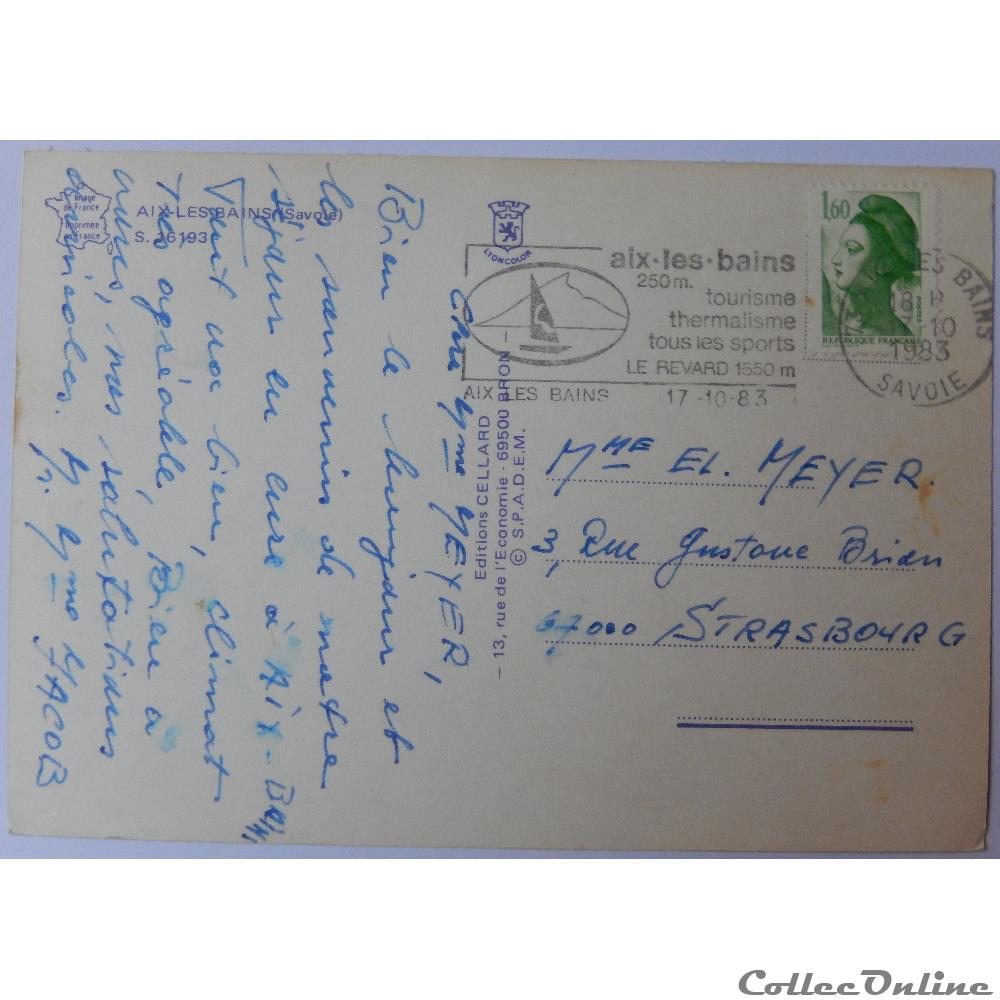 Image
de France
Imprimée
en France
AIX-LES-BAINS (Savoie)
S. 16193
LYONCOLOR
aix·les·bains
250 m.
tourisme
thermalisme
tous les sports
LE REVARD 1550 m
AIX LES BAINS 17-10-83
1,60
REPUBLIQUE FRANÇAISE
LES BAINS
18 H
10
1983
SAVOIE
Editions CELLARD
— 13, rue de l'Economie - 69500 BRON —
© S.P.A.D.E.M.
Chère Mme MEYER,
Bien le bonjour et
les souvenirs de notre
séjour en cure à AIX-BAIN
Tout va bien, climat
très agréable, Bien à
vous, nos salutations
amicales. M. Mme JACOB
MME EL. MEYER.
3, Rue Gustave Brion
67000 STRASBOURG
CollecOnline